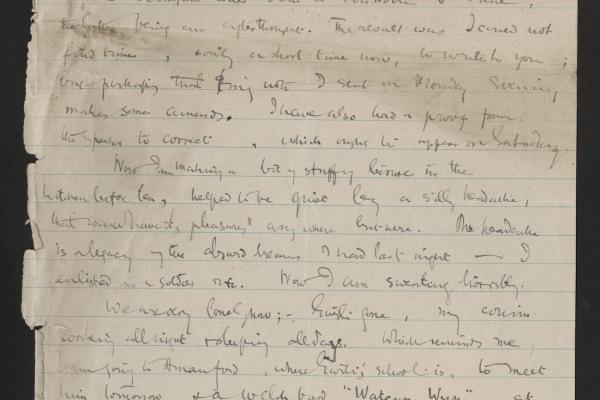 the latter being an afterthought. The result was I could not
find time, & only a short time now, to write to you;
but perhaps that long note I sent on Monday Evening
makes some amends. I have also had a proof from
the Speaker to correct, which might to appear on Saturday.
Now I am making a bit of study because in the
kitchen before tea, helped to be quiet by a silly headache,
that would have its pleasures anywhere but here. The headache
is a legacy of the absurd dreams I had last night — I
enlisted as a soldier etc. Now I am sweating horribly.
We are very lonely now; – Emily gone, my cousin
working all night & sleeping all day. Which reminds me,
I am going to Ammanford, where Emily's school is, to meet
him tomorrow & a Welsh bard "Watcyn Wyn" at